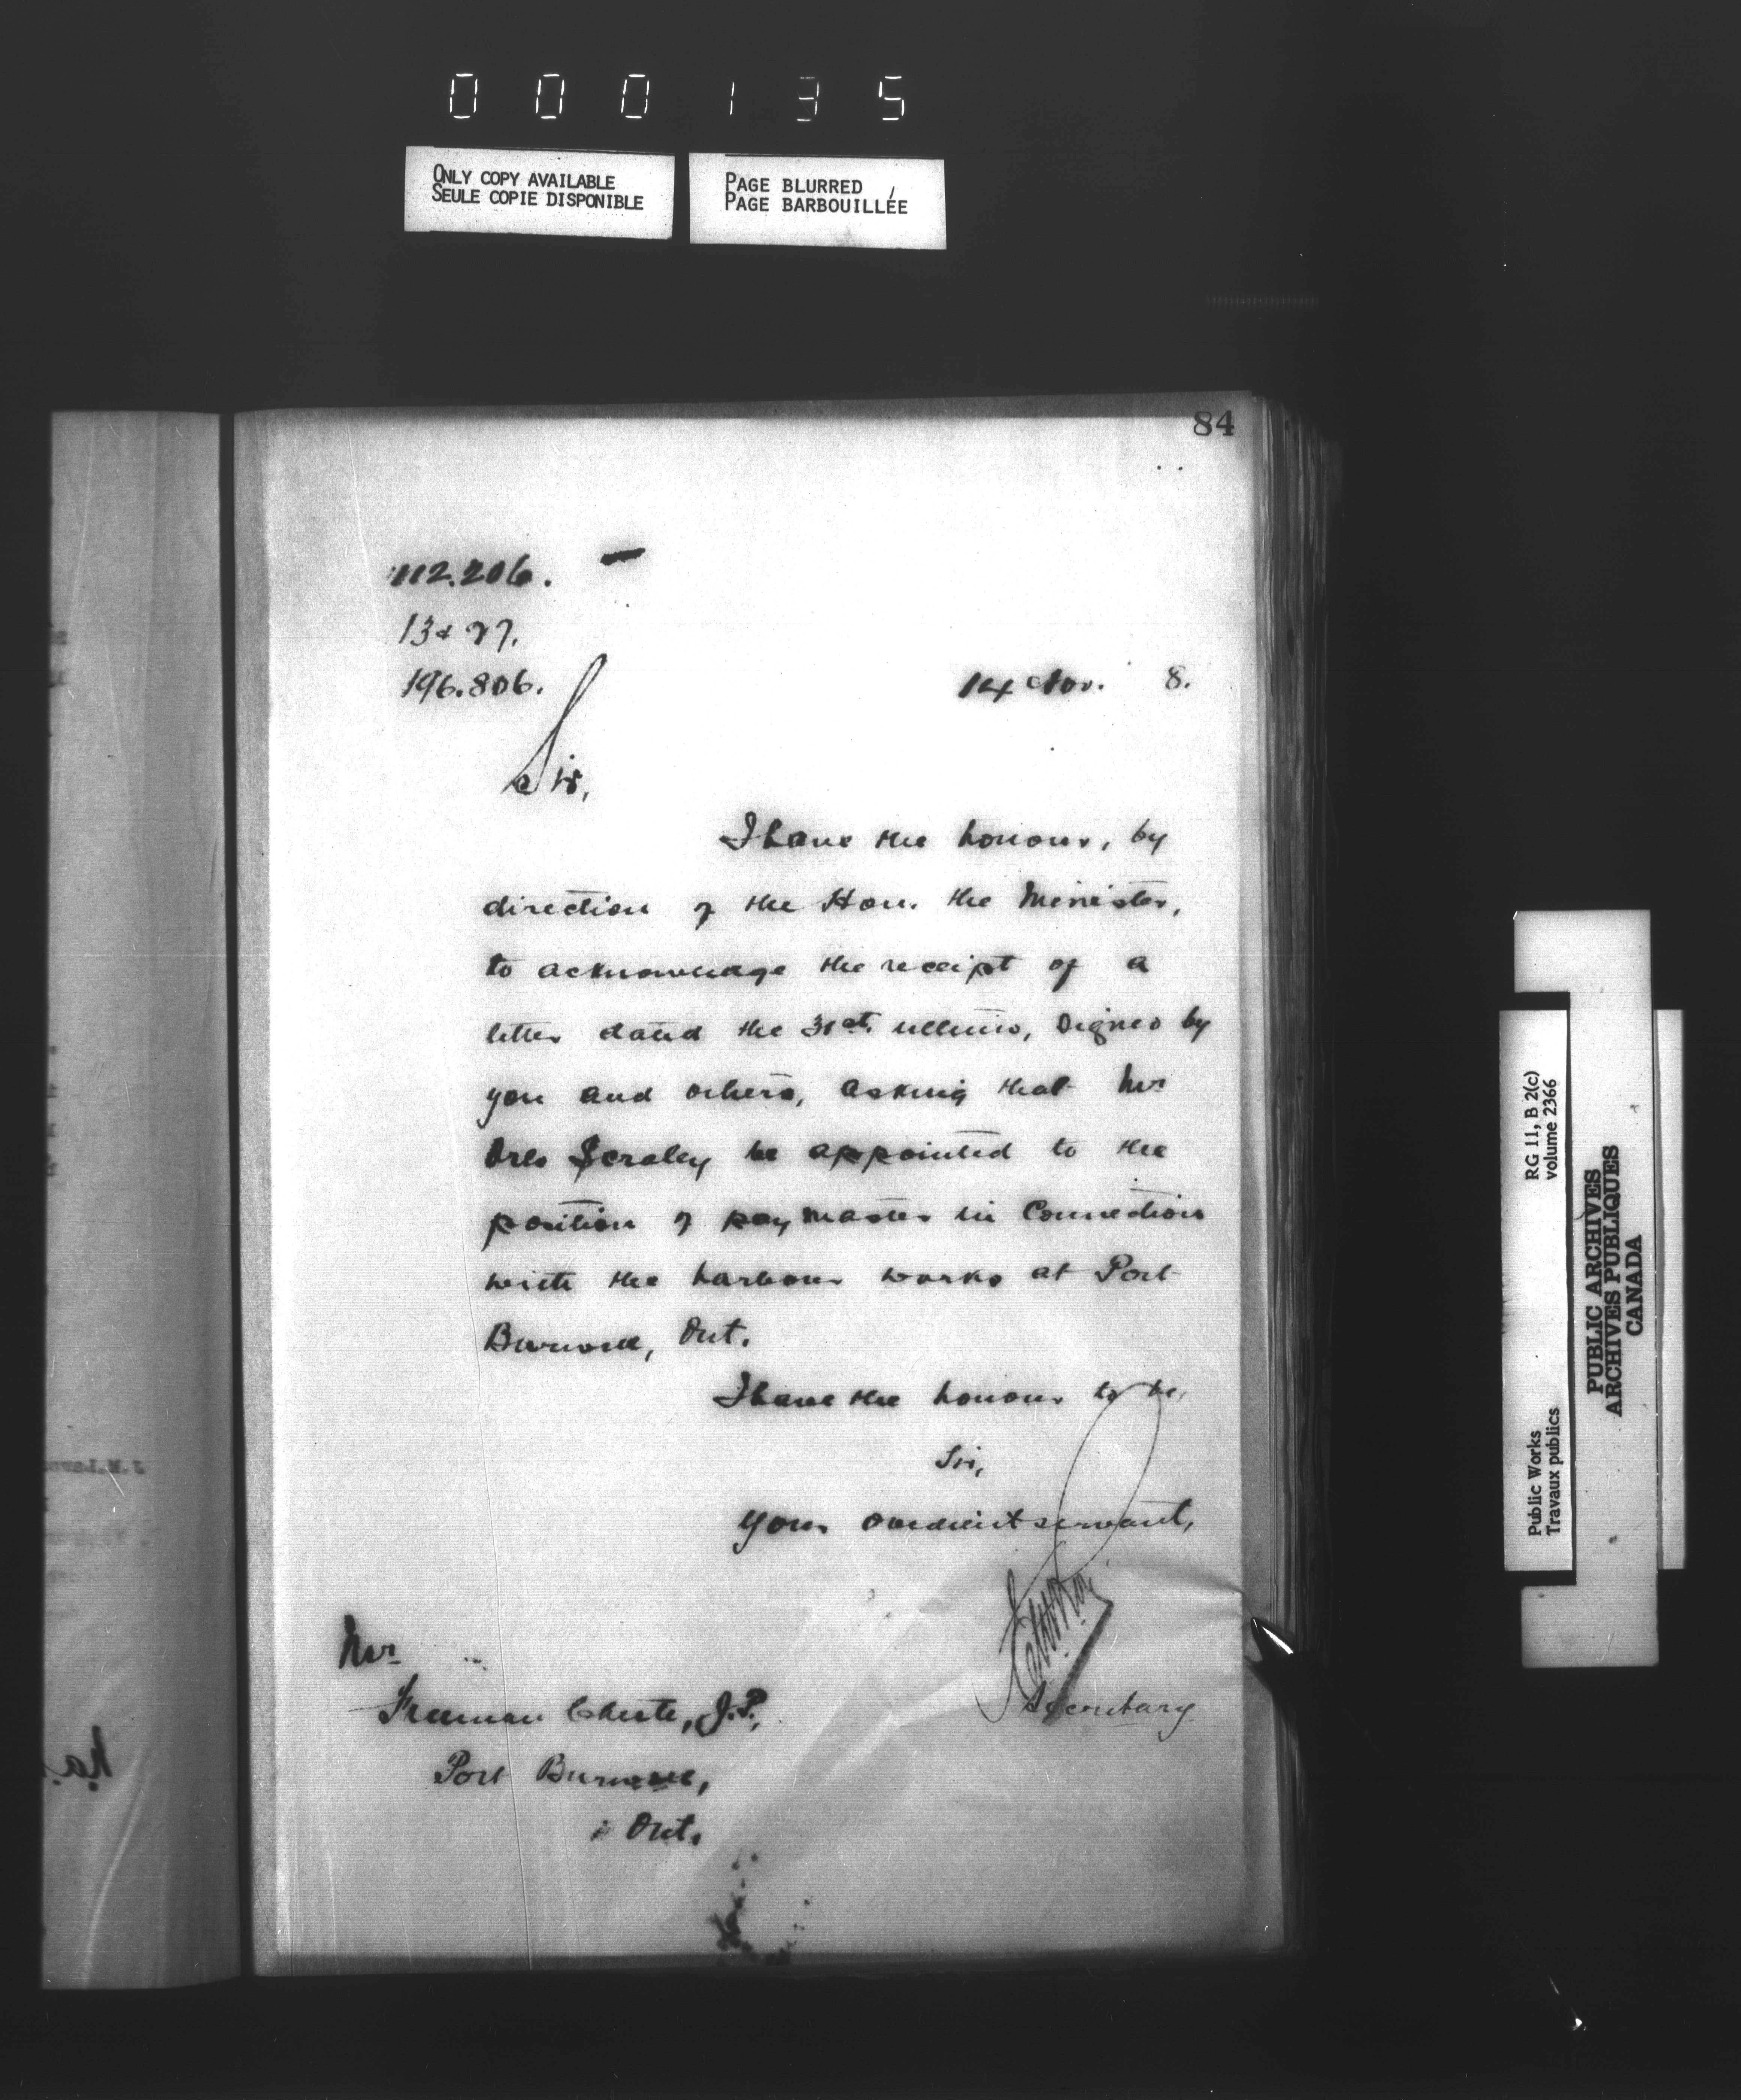 000135
ONLY COPY AVAILABLE
SEULE COPIE DISPONIBLE
PAGE BLURRED
PAGE BARBOUILLÉE
84
112.206.
13 & 27.
196.806.
14 Nov. 8.
Sir,
I have the honour, by
direction of the Hon. the Minister,
to acknowledge the receipt of a
letter dated the 31st. ultimo, signed by
you and others, asking that Mr
be appointed to the
position of paymaster in connection
with the harbour works at Port
Burwell, Ont.
I have the honour to be,
Sir,
Your obedient servant,
Secretary
Mr
Freeman Chute, J.P.,
Port Burwell,
Ont.
RG 11, B 2(c)
volume 2366
Public Works
Travaux publics
PUBLIC ARCHIVES
ARCHIVES PUBLIQUES
CANADA